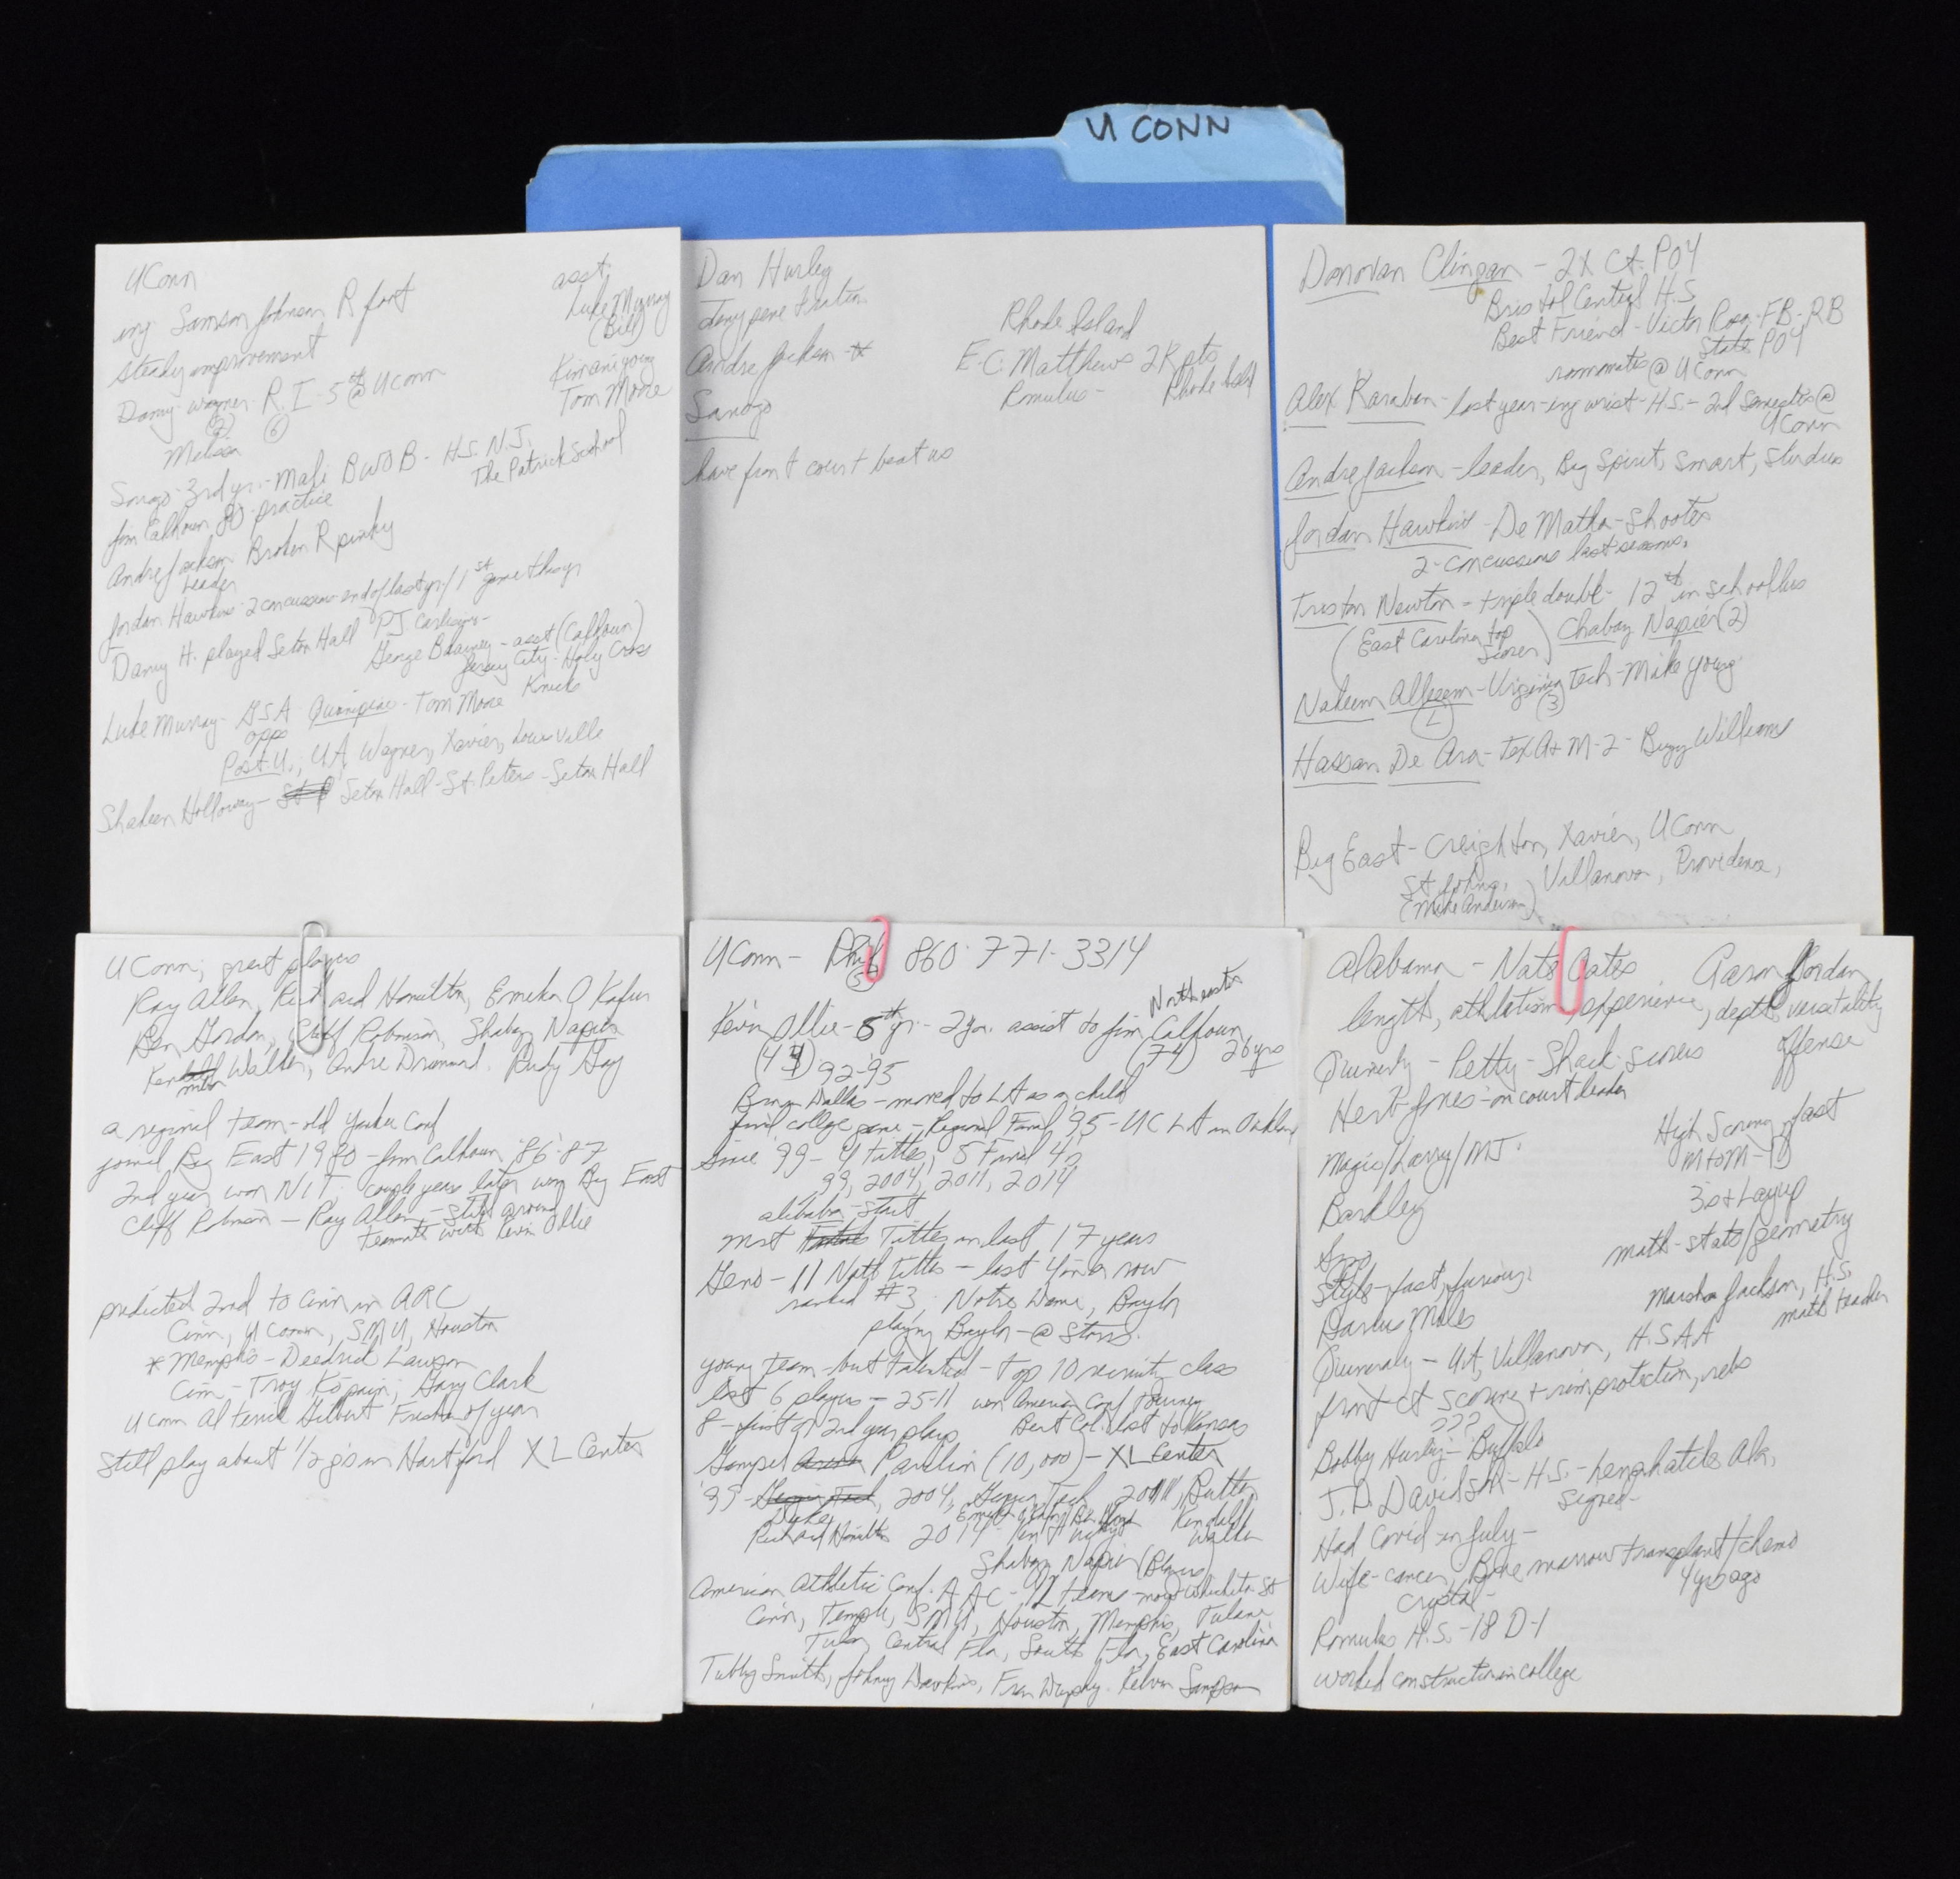 U CONN
UConn
asst.
inj. Samson Johnson R foot
Luke Murray
(Bill)
steady improvement
Kimani Young
Danny - Wagner - R.I - 5th @ UConn
Tom Moore
(2) (6)
Melissa
Sanogo - 3rd yr. - Mali BWOB - H.S. N.J.
The Patrick School
Jim Calhoun 80 practice
Andre Jackson Broken R pinky
Leader
Jordan Hawkins - 2 concussions - end of last yr / 1st game this yr
Danny H. played Seton Hall P.J. Carlesimo -
George Blaney - asst (Calhoun)
Jersey City - Holy Cross
Knicks
Luke Murray - GSA Quinnipiac - Tom Moore
opps
Post U., UA, Wagner, Xavier, Louisville
Shaheen Holloway - Seton Hall - St. Peters - Seton Hall
Dan Hurley
Andre Jackson
Sanogo
have front court beat us
Rhode Island
E.C. Matthews 2K pts
Romulus -
Donovan Clingan - 2X Ct. POY
Bristol Central H.S.
Best Friend - Victor Rosa - FB - RB
State POY
roommates @ UConn
Alex Karaban - last year - inj wrist - H.S. - 2nd Semester @
UConn
Andre Jackson - leader, Big Spirit, Smart, Studies
Jordan Hawkins - De Matha - Shooter
2 - concussions last season.
Tristan Newton - triple double - 12th in school his
(East Carolina top
Scorer)
Chabaz Napier (2)
Naheem Alleem - Virginia Tech - Mike Young
(2) (3)
Hassan De Ara - Tex A+M - 2 - Buzz Williams
Big East - Creighton, Xavier, UConn
St Johns, Villanova, Providence,
(Mike Anderson)
UConn; great players
Ray Allen, Richard Hamilton, Emeka O Kafur
Ben Gordon, Cliff Robinson, Shabaz Napier
Walker, Andre Drummond. Rudy Gay
a regional team - old Yankee Conf
joined Big East 1980 - Jim Calhoun '86-87
2nd year won NIT; couple years later won Big East
Cliff Robinson - Ray Allen - still around
teammate with Kevin Ollie
predicted 2nd to Cinn in ARC
Cinn, UConn, SMU, Houston
* Memphis - Deedrick Lawson
Cinn - Troy Kopain; Gary Clark
UConn Alterick Gilbert Freshm of year
Still play about 1/2 g's in Hartford XL Center
UConn - Phil 860-771-3314
Northeastern
Kevin Ollie - 5th yr. - 2 yr. assist to Jim Calhoun
(44) 92-95 (74) 26 yrs
Born Dallas - moved to LA as a child
final college game - Regional Final 95 - UCLA in Oakland
Since '99 - 4 titles, 5 Final 4's
99, 2004, 2011, 2014
alibaba - start
most Titles in last 17 years
Geno - 11 Natl Titles - last 4 in a row
ranked #3, Notre Dame, Baylor
playing Baylor - @ Storrs.
young team - but talented - top 10 recruit class
lost 6 players - 25-11 won American Conf Tourney
8 - first or 2nd year plays Beat Col. lost to Kansas
Gampel Pavilion (10,000) - XL Center
'99 - Duke, 2004, Georgia Tech 2011, Butler
Richard Hamilton 2014 Kentucky Kendall
Walker
Shabaz Napier (Blazers)
American Athletic Conf. AAC - 12 teams - now Wichita St
Cinn, Temple, SMU, Houston, Memphis, Tulane
Tulsa, Central Fla, South Fla, East Carolina
Tubby Smith, Johnny Dawkins, Fran Dunphy. Kelvin Sampson
Alabama - Nate Oates Aaron Jordan
length, athleticism, experience, depth, versatility
offense
Quinerly - Petty - Shack - scorers
Herb Jones - on court leader
High Scoring, fast
Magic/Larry/MJ.
M to M - D
Barkley
3's + Layup
math - stats/geometry
Style - fast, furious
Marsha Jackson, H.S.
math teacher
Darius Miles
Quinerly - UA, Villanova, H.S.A.A
front ct scoring + rim protection, rebs
???
Bobby Hurley - Buffalo
J.D. Davidson - H.S. - Lenphatche Ala.
Signed -
Had Covid in July -
Wife - cancer, Bone marrow transplant/chemo
Crystal - 4 yrs ago
Romulus H.S. - 18 D-1
worked construction in college